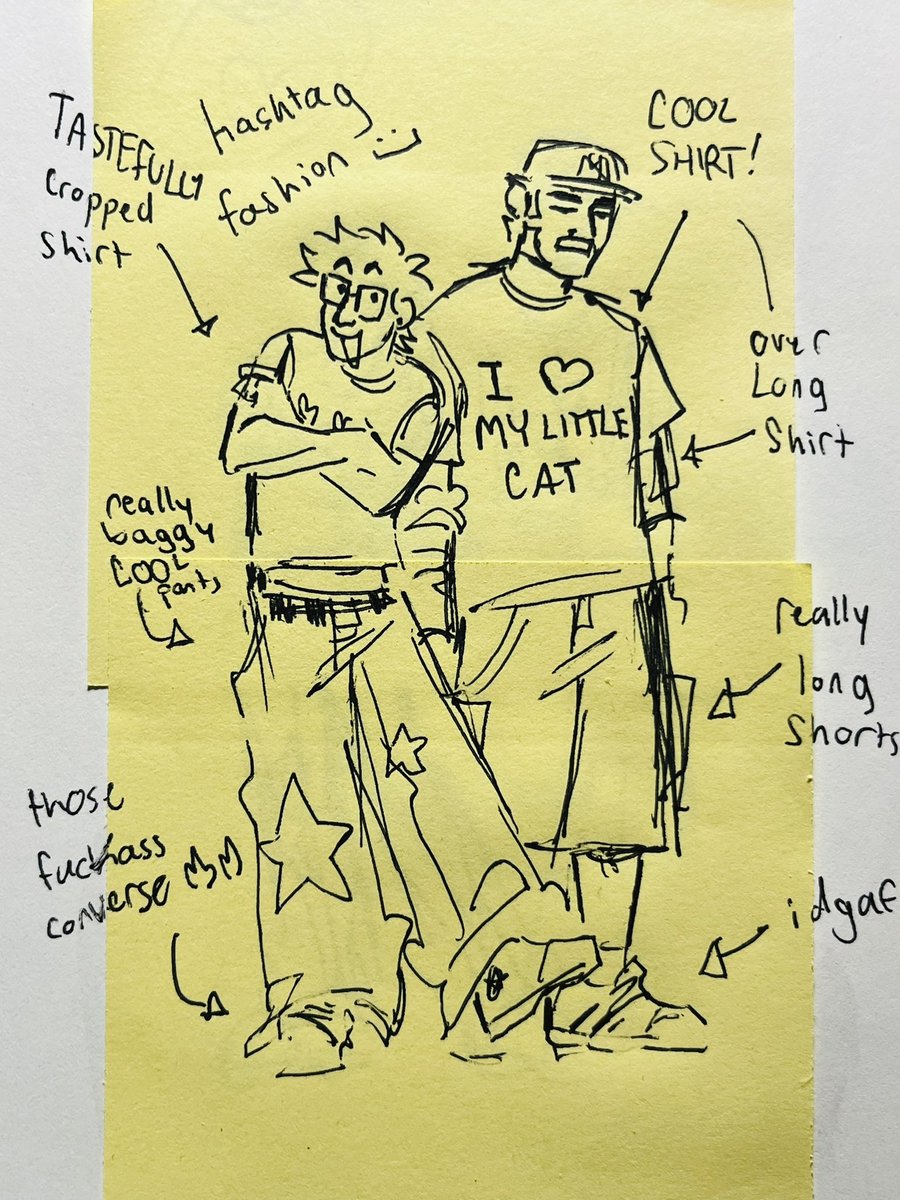 TASTEFULLY
cropped
shirt
hashtag
fashion :)
COOL
SHIRT!
over
Long
Shirt
I ♡
MY LITTLE
CAT
really
baggy
COOL
pants
really
long
shorts
those
fuckass
converse
idgaf